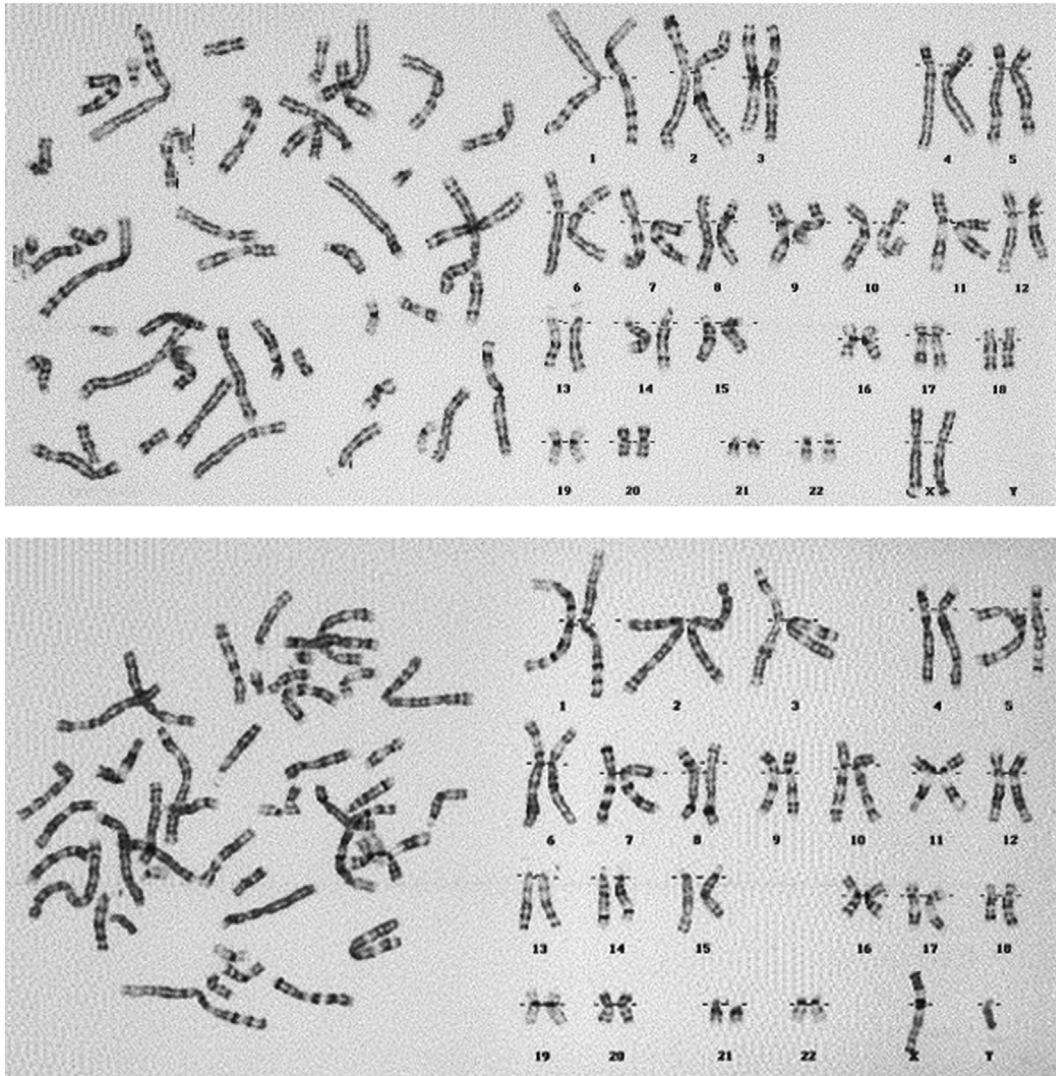 1 2 3 4 5
6 7 8 9 10 11 12
13 14 15 16 17 18
19 20 21 22 X Y
1 2 3 4 5
6 7 8 9 10 11 12
13 14 15 16 17 18
19 20 21 22 X Y